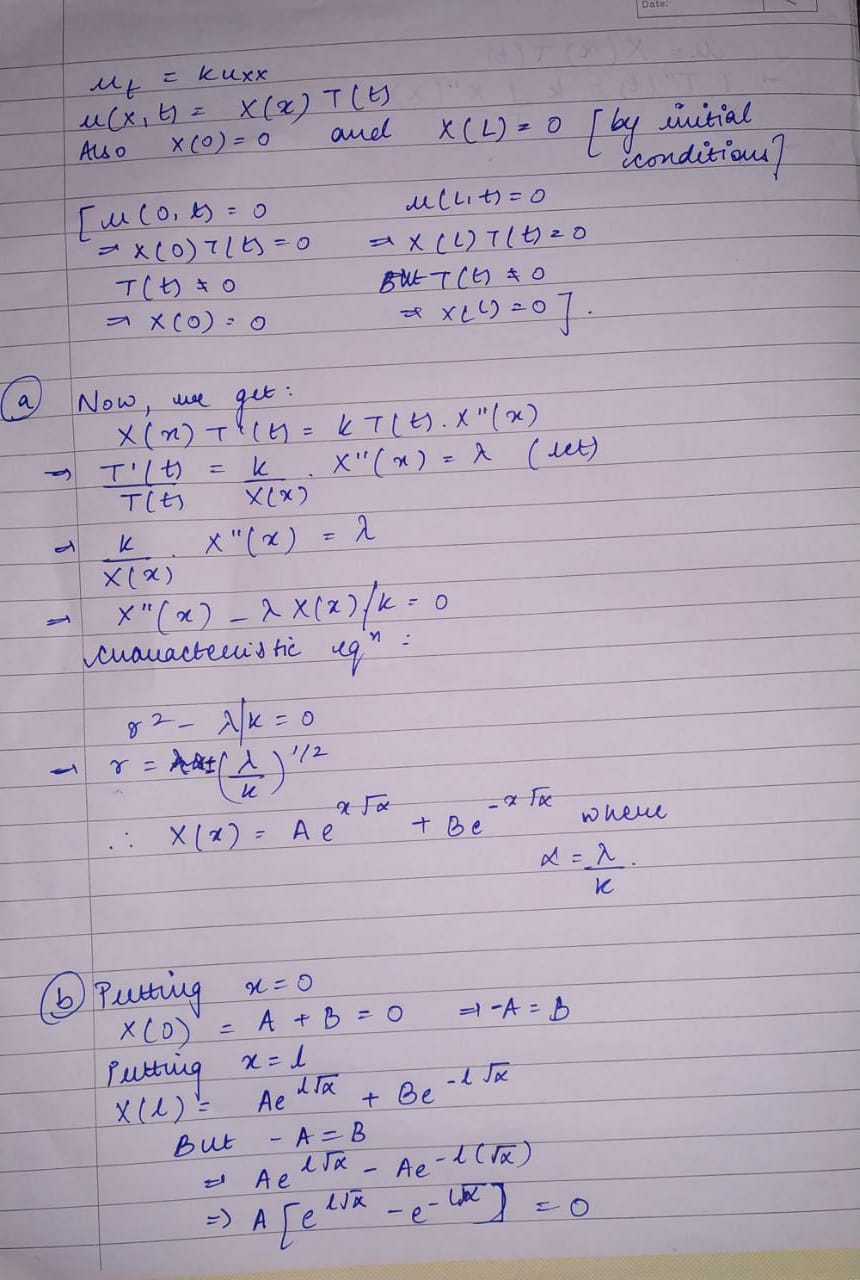 Date:
u_t = k u_xx
u(x, t) = X(x) T(t)
Also X(0) = 0 and X(L) = 0 [by initial conditions]
[u(0, t) = 0 u(L, t) = 0
⇒ X(0) T(t) = 0 ⇒ X(L) T(t) = 0
T(t) ≠ 0 But T(t) ≠ 0
⇒ X(0) = 0 ⇒ X(L) = 0].
(a) Now, we get:
X(x) T'(t) = k T(t). X"(x)
⇒ T'(t)/T(t) = k/X(x) . X"(x) = λ (let)
⇒ k/X(x) . X"(x) = λ
⇒ X"(x) - λ X(x)/k = 0
Characteristic eqⁿ :
r² - λ/k = 0
⇒ r = ±(λ/k)^1/2
∴ X(x) = A e^x√α + B e^-x√α where
α = λ/k.
(b) Putting x = 0
X(0) = A + B = 0 ⇒ -A = B
Putting x = l
X(l) = Ae^l√α + Be^-l√α
But -A = B
⇒ Ae^l√α - Ae^-l(√α)
⇒ A[e^l√α - e^-l√α] = 0